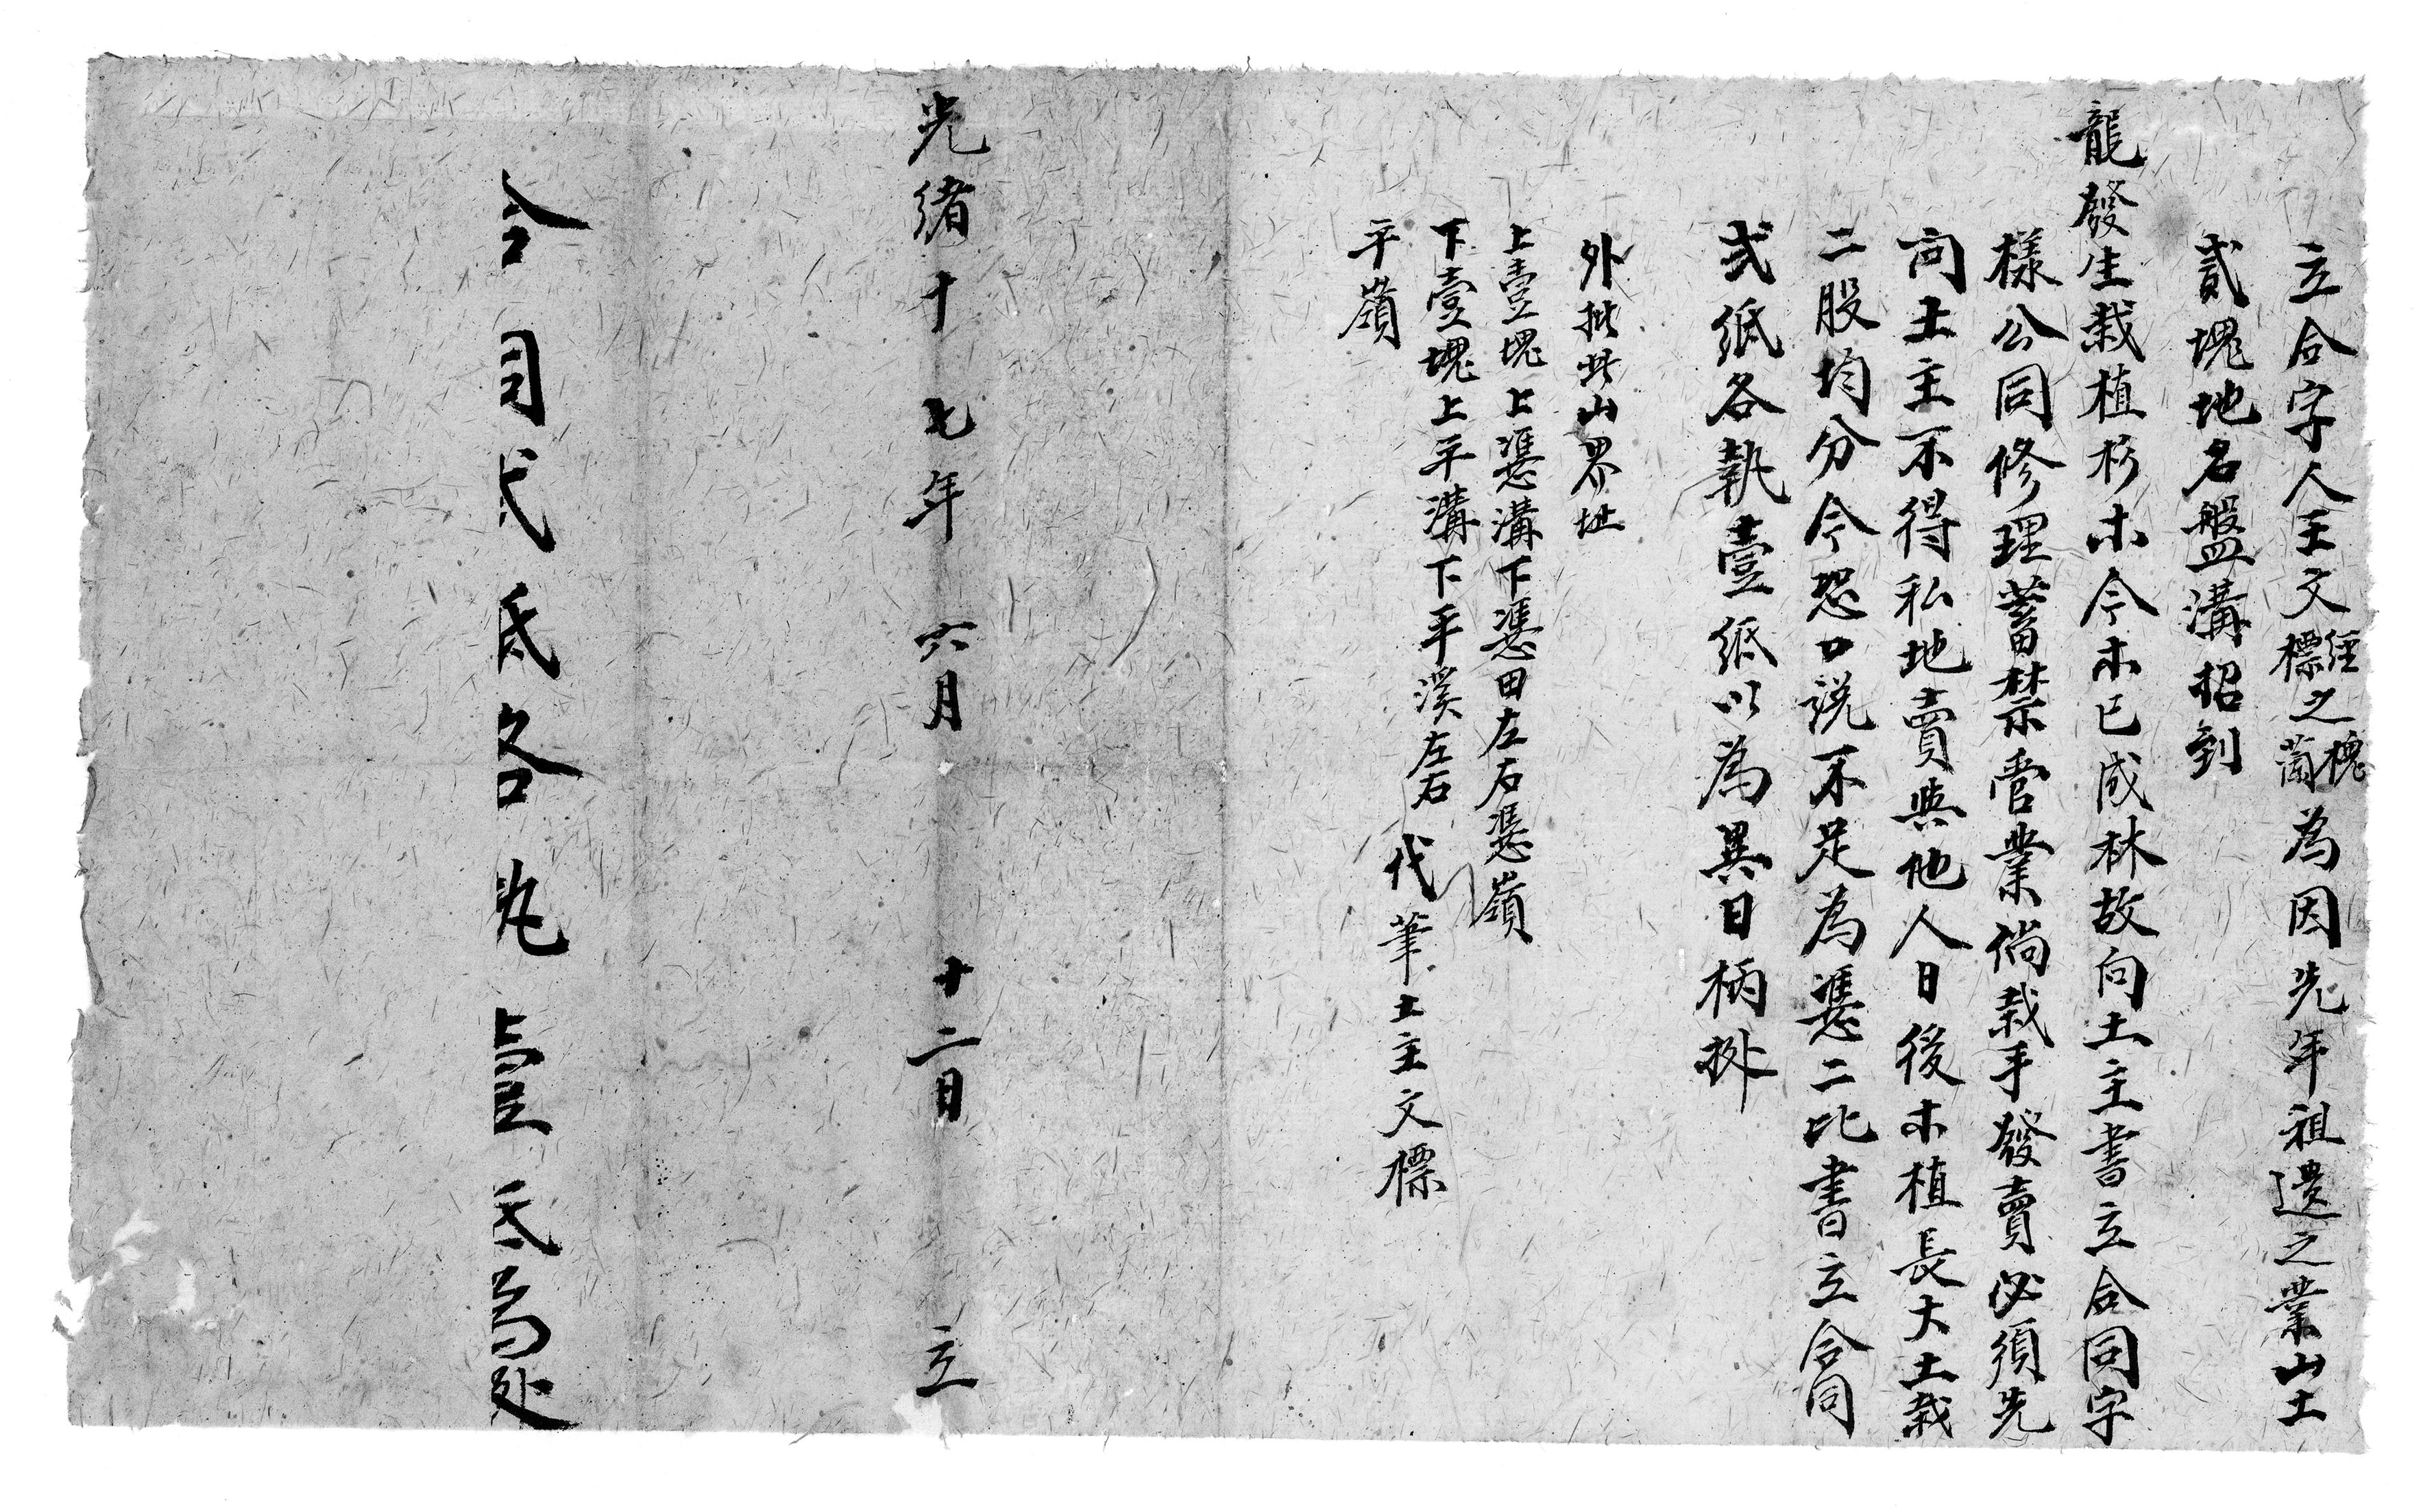 立合字人王文經標之槐蘭為因先年祖遺之業山土
貳塊地名盤溝招到
龍發生栽植杉木今木已成林故向土主書立合同字
樣公同修理蓄禁管業倘栽手發賣必須先
問土主不得私地賣與他人日後木植長大土栽
二股均分今恐口說不足為憑二比書立合同
弍紙各執壹紙以為異日柄㨿
外批此山界址
上壹塊上憑溝下憑田左右憑嶺
下壹塊上平溝下平溪左右
平嶺
代筆土主文標
光緒十七年六月十二日立
合同弍紙各執壹紙為処